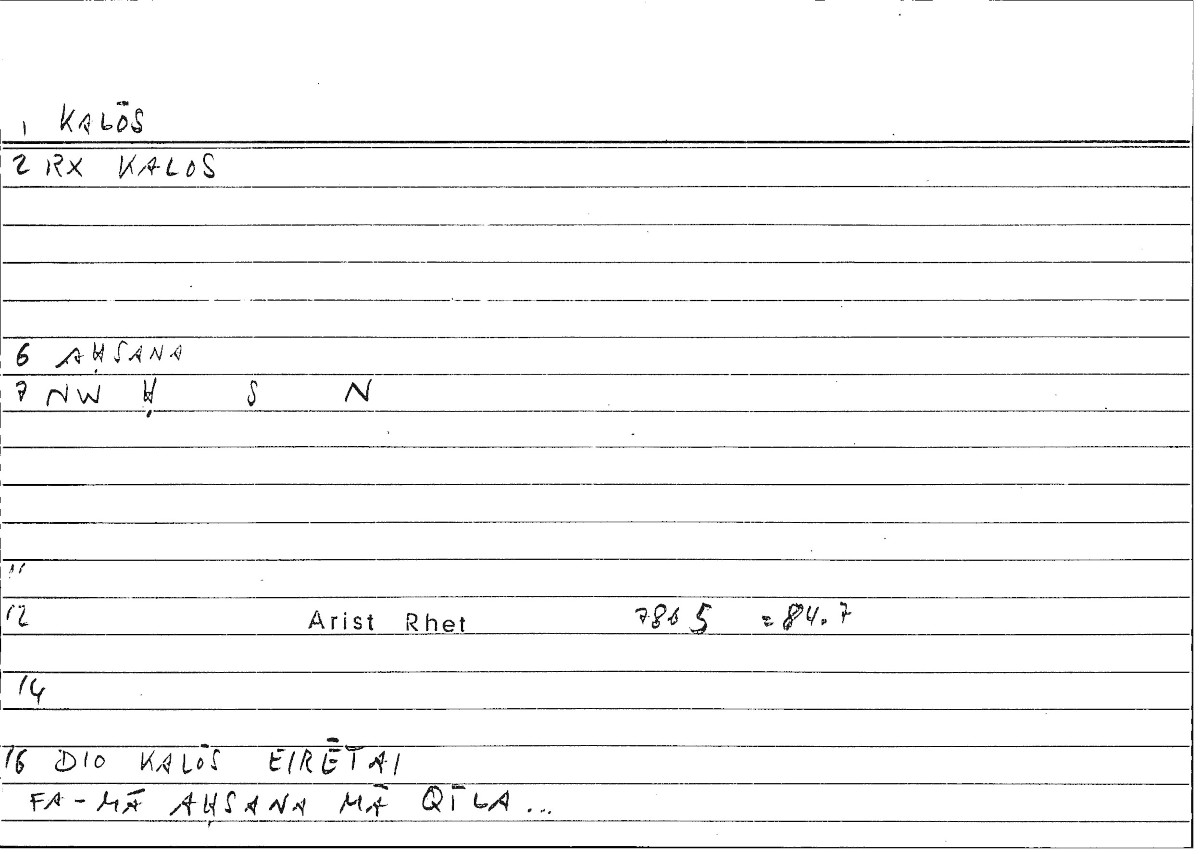 1 KALŌS
2 RX KALOS
6 AḤSANA
7 NW Ḥ S N
11
12 Arist Rhet 78b5 = 84.7
14
16 DIO KALŌS EIRĒTAI
FA-MĀ AḤSANA MĀ QĪLA...